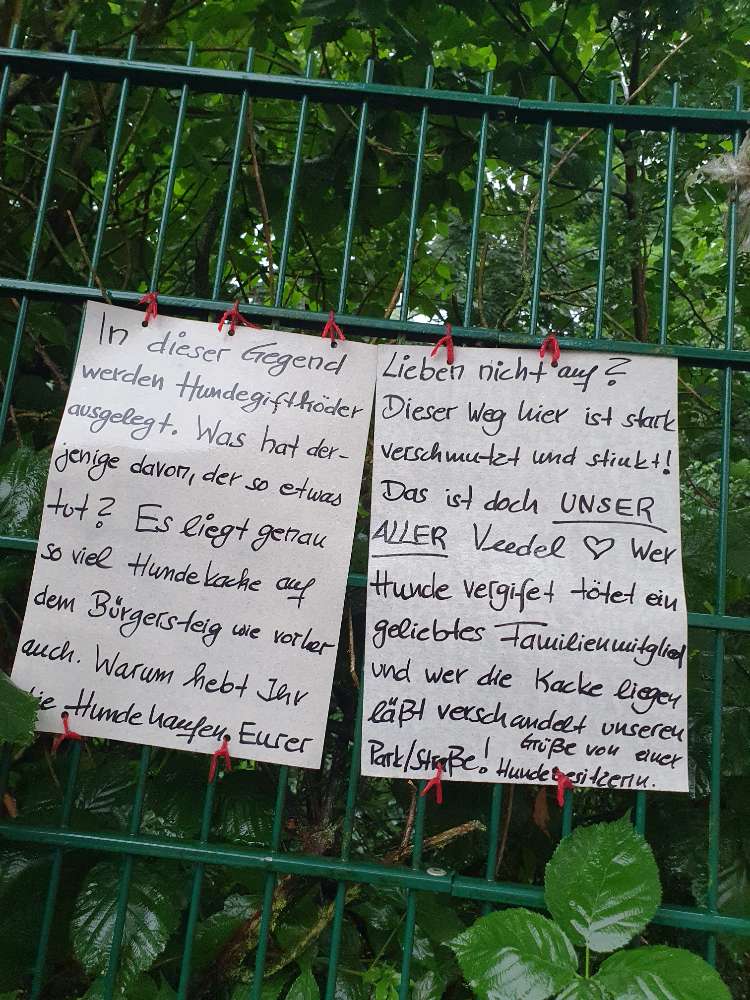 In dieser Gegend
werden Hundegiftköder
ausgelegt. Was hat der-
jenige davon, der so etwas
tut? Es liegt genau
so viel Hundekacke auf
dem Bürgersteig wie vorher
auch. Warum hebt Ihr
die Hundehaufen Eurer
Lieben nicht auf?
Dieser Weg hier ist stark
verschmutzt und stinkt!
Das ist doch UNSER
ALLER Veedel ♡ Wer
Hunde vergifet tötet ein
geliebtes Familienmitglied
und wer die Kacke liegen
läßt verschandelt unseren
Park/Straße! Grüße von einer
Hundebesitzerin.